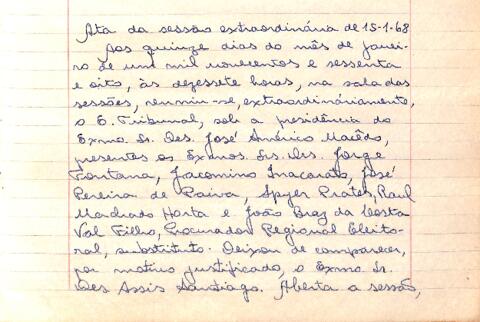 Ata da sessão extraordinária de 15-1-68
Aos quinze dias do mês de janei-
ro de um mil novecentos e sessenta
e oito, às dezessete horas, na sala das
sessões, reuniu-se, extraordinàriamente,
o E. Tribunal, sob a presidência do
Exmo. Sr. Des. José Américo Macêdo,
presentes os Exmos. Srs. Drs. Jorge
Fontana, Jacomino Inacarato, José
Pereira de Paiva, Spyer Prates, Raul
Machado Horta e João Braz da Costa
Val Filho, Procurador Regional Eleito-
ral, substituto. Deixou de comparecer,
por motivo justificado, o Exmo. Sr.
Des. Assis Santiago. Aberta a sessão,